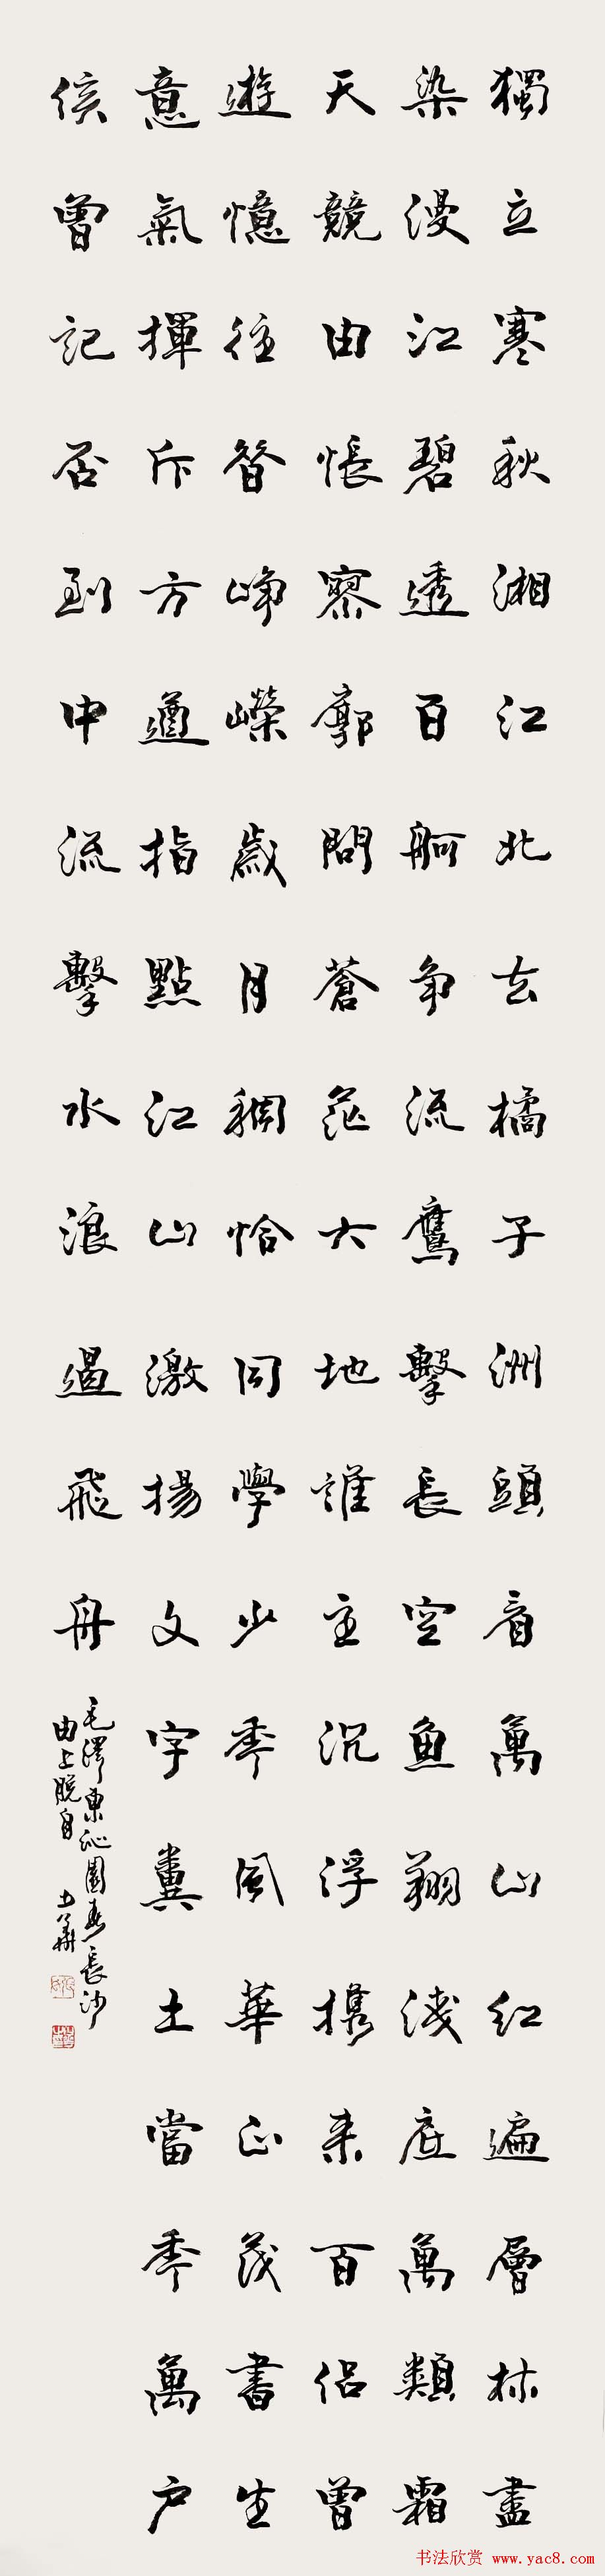 獨立寒秋湘江北去橘子洲頭看萬山紅遍層林盡
染漫江碧透百舸争流鷹擊長空魚翔淺底萬類霜
天競由悵寥廓問蒼茫大地誰主沉浮携来百侣曾
遊憶往昔崢嶸歲月稠恰同學少秊風華正茂書生
意氣揮斥方遒指點江山激揚文字糞土當秊萬户
侯曾記否到中流擊水浪遏飛舟
毛澤東沁園春長沙
由上脱自
书法欣赏 www.yac8.com